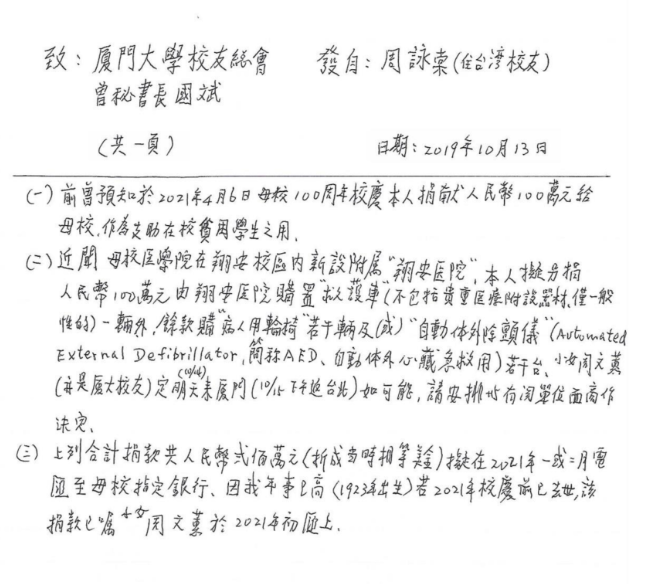 致：廈門大學校友總會 發自：周詠棠(住台灣校友)
曾秘書長國斌
(共一頁) 日期：2019年10月13日
(一) 前曾預知於2021年4月6日母校100周年校慶本人捐献人民幣100萬元給
母校,作為支助在校貧困學生之用.
(二) 近聞 母校医學院在翔安校區内新設附属"翔安医院",本人擬另捐
人民幣100萬元由翔安医院購置"救護車"(不包括貴重医療附設器材,僅一般
性的)一輛外,餘款購"病人用輪椅"若干輛及(或)"自動体外除顫儀"(Automated
External Defibrillator,簡称AED、自動体外心臟急救用)若干台、小女周文薰
(10/14)
(亦是厦大校友)定明天来厦门(10/15下午返台北)如可能,請安排与有関單位面商作
决定.
(三) 上列合計捐款共人民幣貳佰萬元(折成当時相等美金)擬在2021年一或二月電
匯至母校指定銀行、因我年事已高(1923年出生)若2021年校慶前已去世,該
捐款已囑小女周文薰於2021年初匯上.